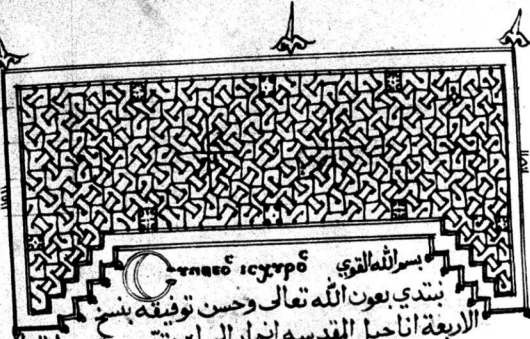 ⲓⲥⲭⲩⲣⲟⲥ بسم الله القوي
نبتدي بعون الله تعالى وحسن توفيقه بنسخ
الاربعة اناجيل المقدسه